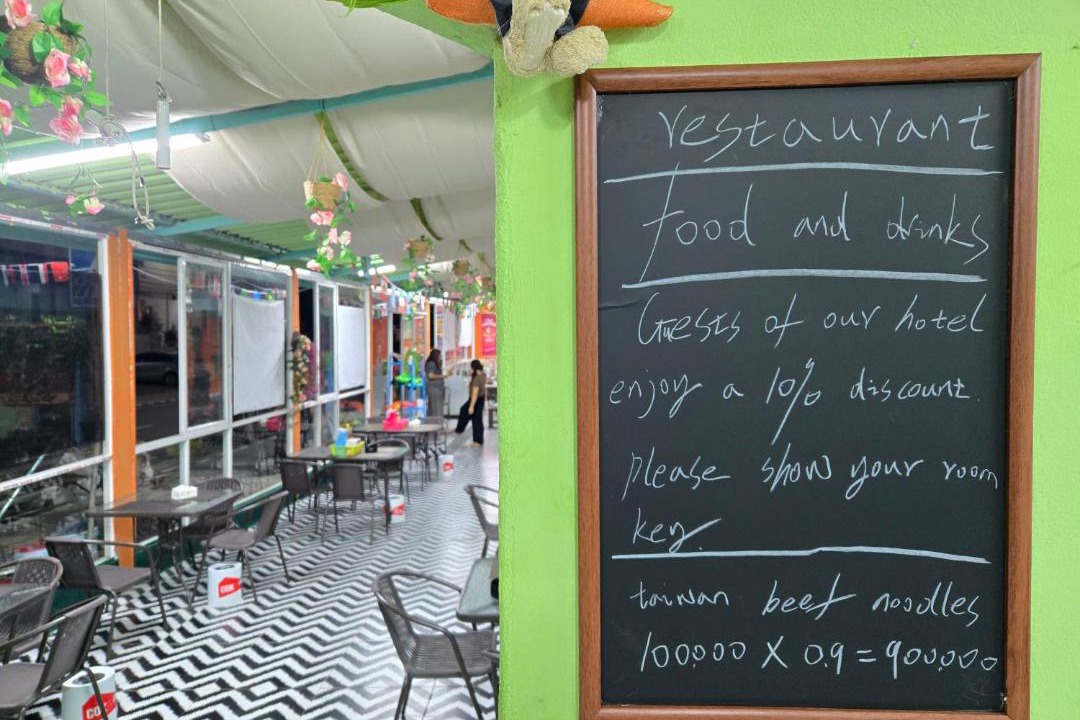 restaurant
food and drinks
Guests of our hotel
enjoy a 10% discount.
please show your room
key.
taiwan beef noodles
100.000 X 0.9 = 900.000